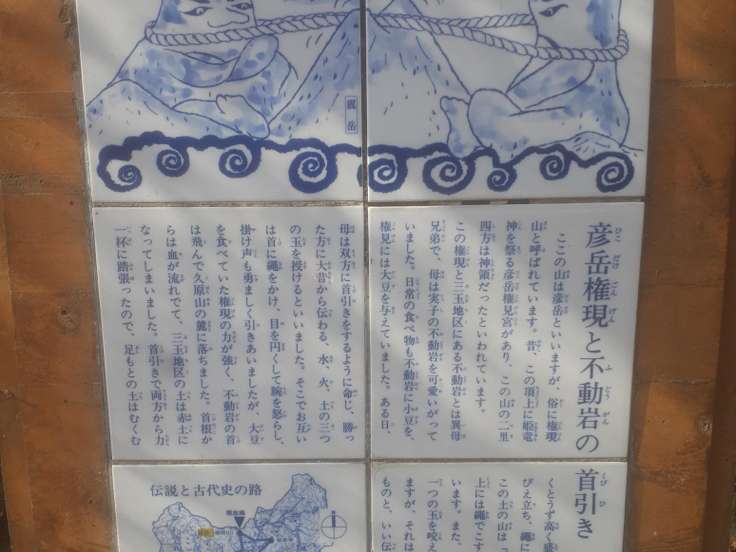 震岳
彦岳権現と不動岩の首引き
ここの山は彦岳といいますが、俗に権現
山と呼ばれています。昔、この頂上に姫竜
神を祭る彦岳権見宮があり、この山の二里
四方は神領だったといわれています。
この権現と三玉地区にある不動岩とは異母
兄弟で、母は実子の不動岩を可愛いがって
いました。日常の食べ物も不動岩に小豆を、
権見には大豆を与えていました。ある日、
母は双方に首引きをするように命じ、勝っ
た方に大昔から伝わる、水、火、土の三つ
の玉を授けるといいました。そこでお互い
は首に縄をかけ、目を円くして腕を怒らし、
掛け声も勇ましく引きあいましたが、大豆
を食べていた権現の力が強く、不動岩の首
は飛んで久原山の麓に落ちました。首根か
らは血が流れでて、三玉地区の土は赤土に
なってしまいました。首引きで両方から力
一杯に踏張ったので、足もとの土はむくむ
くとうず高く盛
びえ立ち、縄に
この土の山は
上には縄でこす
います。また、
一つの玉を咬え
ますが、それは
ものと、いい伝
伝説と古代史の路